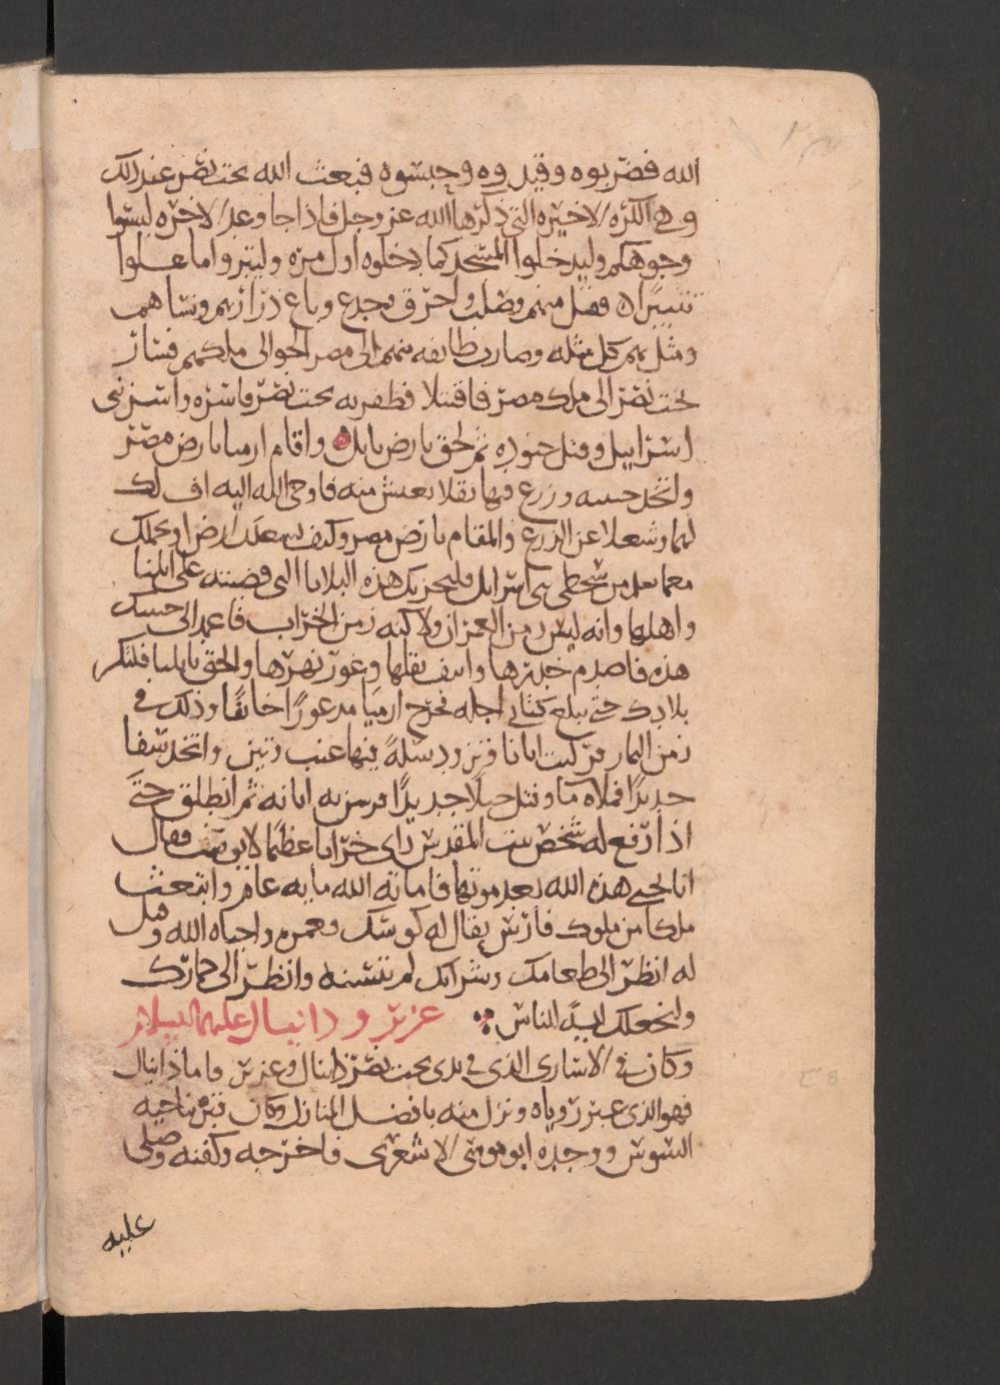 الله فضربوه وقيدوه وحبسوه فبعث الله بخت نصر عند ذلك
وهي الكره الاخيره التي ذكرها الله عز وجل فاذا جا وعد الاخره ليسوا
وجوهكم وليدخلوا المسجد كما دخلوه اول مره وليتبروا ما علوا
تتبيرا ه فقتل منهم وصلب واحرق وجدع وباع ذراريهم ونساهم
ومثل بهم كل مثله وصارت طائفه منهم الى مصر لجوا الى ملكهم فسار
بخت نصر الى ملك مصر فاقتتلا فظفر به بخت نصر فاسره واسر بني
اسراييل وقتل جنوده ثم لحق بارض بابل ه واقام ارميا بارض مصر
واتخذ جنينه وزرع فيها بقلا يعيش منه فاوحى الله اليه ان لك
لهما وشغلا عن الزرع والمقام بارض مصر وكيف تسعك ارض او تحملك
مع ما تعلم من سخطي بني اسرايل فليحزنك هذه البلايا التي قضيته على ايليا
واهلها وانه ليس زمن العمران ولاكنه زمن الخراب فاعمد الى جنينتك
هذه فاهدم جدرها وانتف بقلها وغور نهرها والحق بايليا فلتكن
بلادك حتى يبلغ كتابي اجله فخرج ارميا مذعورا خائفا وذلك في
زمن الثمار فركب اتانا وتزود سلة فيها عنب وتين واتخذ سقا
جديدا فملاه ما وفتل حبلا جديدا فرسن به اتانه ثم انطلق حتى
اذا رفع له شخص بيت المقدس راى خرابا عظيما لا يوصف فقال
انا يحيي هذه الله بعد موتها فاماته الله مايه عام وابتعث
ملكا من ملوك فارس يقال له كوشك فعمره واحياه الله وقيل
له انظر الى طعامك وشرابك لم يتسنه وانظر الى حمارك
ولنجعلك اية للناس ∴ عزير ودانيال عليهما السلام
وكان في الاسارى الذي في يدي بخت نصر دانيال وعزير فاما دانيال
فهو الذي عبر روياه ونزل منه بافضل المنازل وكان قبره بناحيه
السوس ووجده ابو موسى الاشعري فاخرجه وكفنه وصلى
عليه